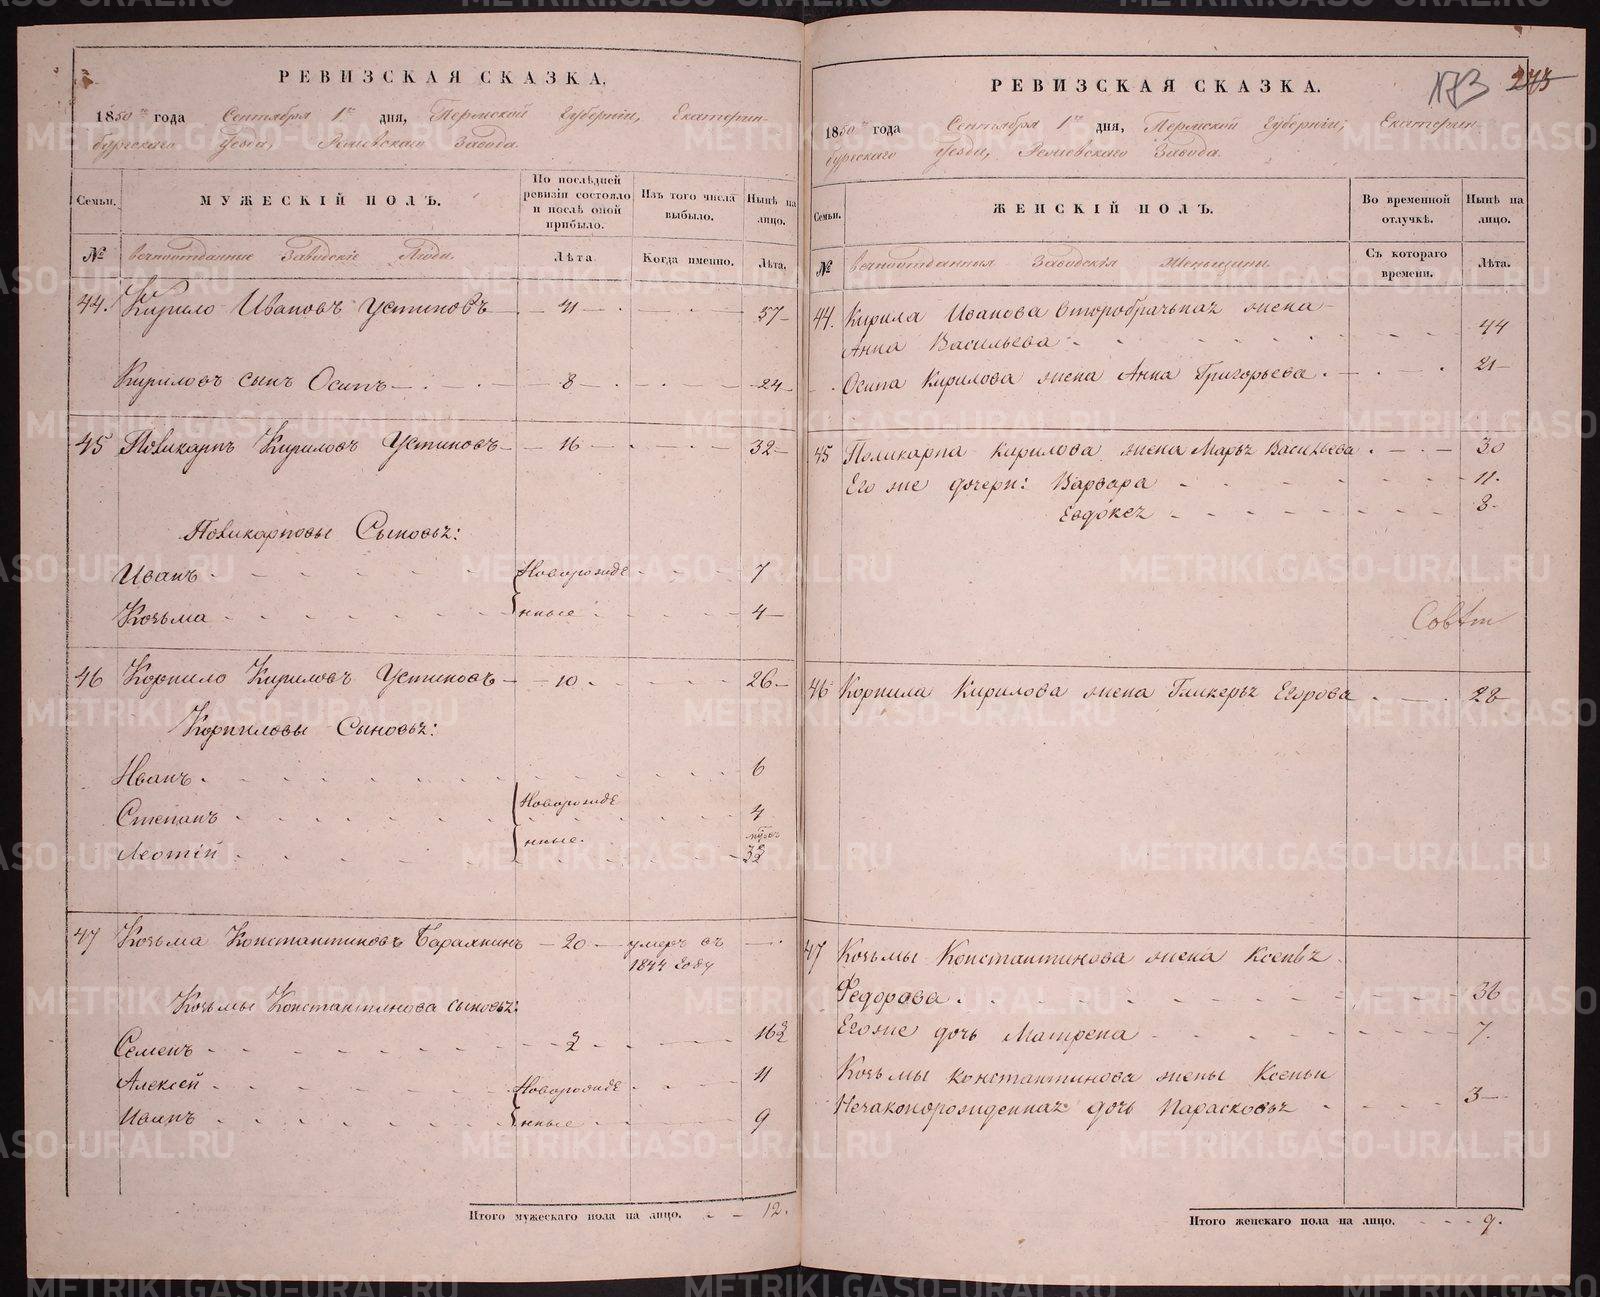 РЕВИЗСКАЯ СКАЗКА.
1850 го года Сентября 1го дня, Пермской Губернiи, Екатерин-
бургскаго Уезда, Режевскаго Завода.
Семьи.
МУЖЕСКIЙ ПОЛЪ.
По послѣдней ревизiи состояло и послѣ оной прибыло.
Изъ того числа выбыло.
Нынѣ на лицо.
№
вечноотданные Заводскiе Люди.
Лѣта
Когда именно.
Лѣта.
44. Кирило Ивановъ Устиновъ 41 57
Кириловъ сынъ Осипъ 8 24
45 Поликарпъ Кириловъ Устиновъ 16 32
Поликарповы Сыновья:
Иванъ Новорожде 7
Козьма нные 4
46 Корнило Кириловъ Устиновъ 10 26
Корниловы Сыновья:
Иванъ 6
Степанъ Новорожде 4
Леотiй нные.
47 Козьма Константиновъ 20 умеръ въ
1844 году
Козьмы Константинова сыновья:
Семенъ 2
Алексѣй Новорожде 11
Иванъ нные 9
Итого мужескаго пола на лицо. 12.
РЕВИЗСКАЯ СКАЗКА.
173 275
1850 го года Сентября 1го дня, Пермской Губернiи, Екатерин-
бургскаго Уезда, Режевскаго Завода.
Семьи.
ЖЕНСКIЙ ПОЛЪ.
Во временной отлучкѣ.
Нынѣ на лицо.
№
вечноотданныя Заводскiя Женьщины.
Съ котораго времени.
Лѣта.
44. Кирила Иванова второбрачьная жена
Анна Васильева 44
Осипа Кирилова жена Анна Григорьева 21
45 Поликарпа Кирилова жена Марья Васильева 30
Его же дочери: Варвара 11.
Евдокея 8.
46 Корнила Кирилова жена Гликерья Егорова 28
47 Козьмы Константинова жена Ксенья
Федорова 36
Его же дочь Матрена 7.
Козьмы Константинова жены Ксеньи
Незаконорожденная дочь Парасковья 3
Итого женскаго пола на лицо. 9.
METRIKI.GASO-URAL.RU